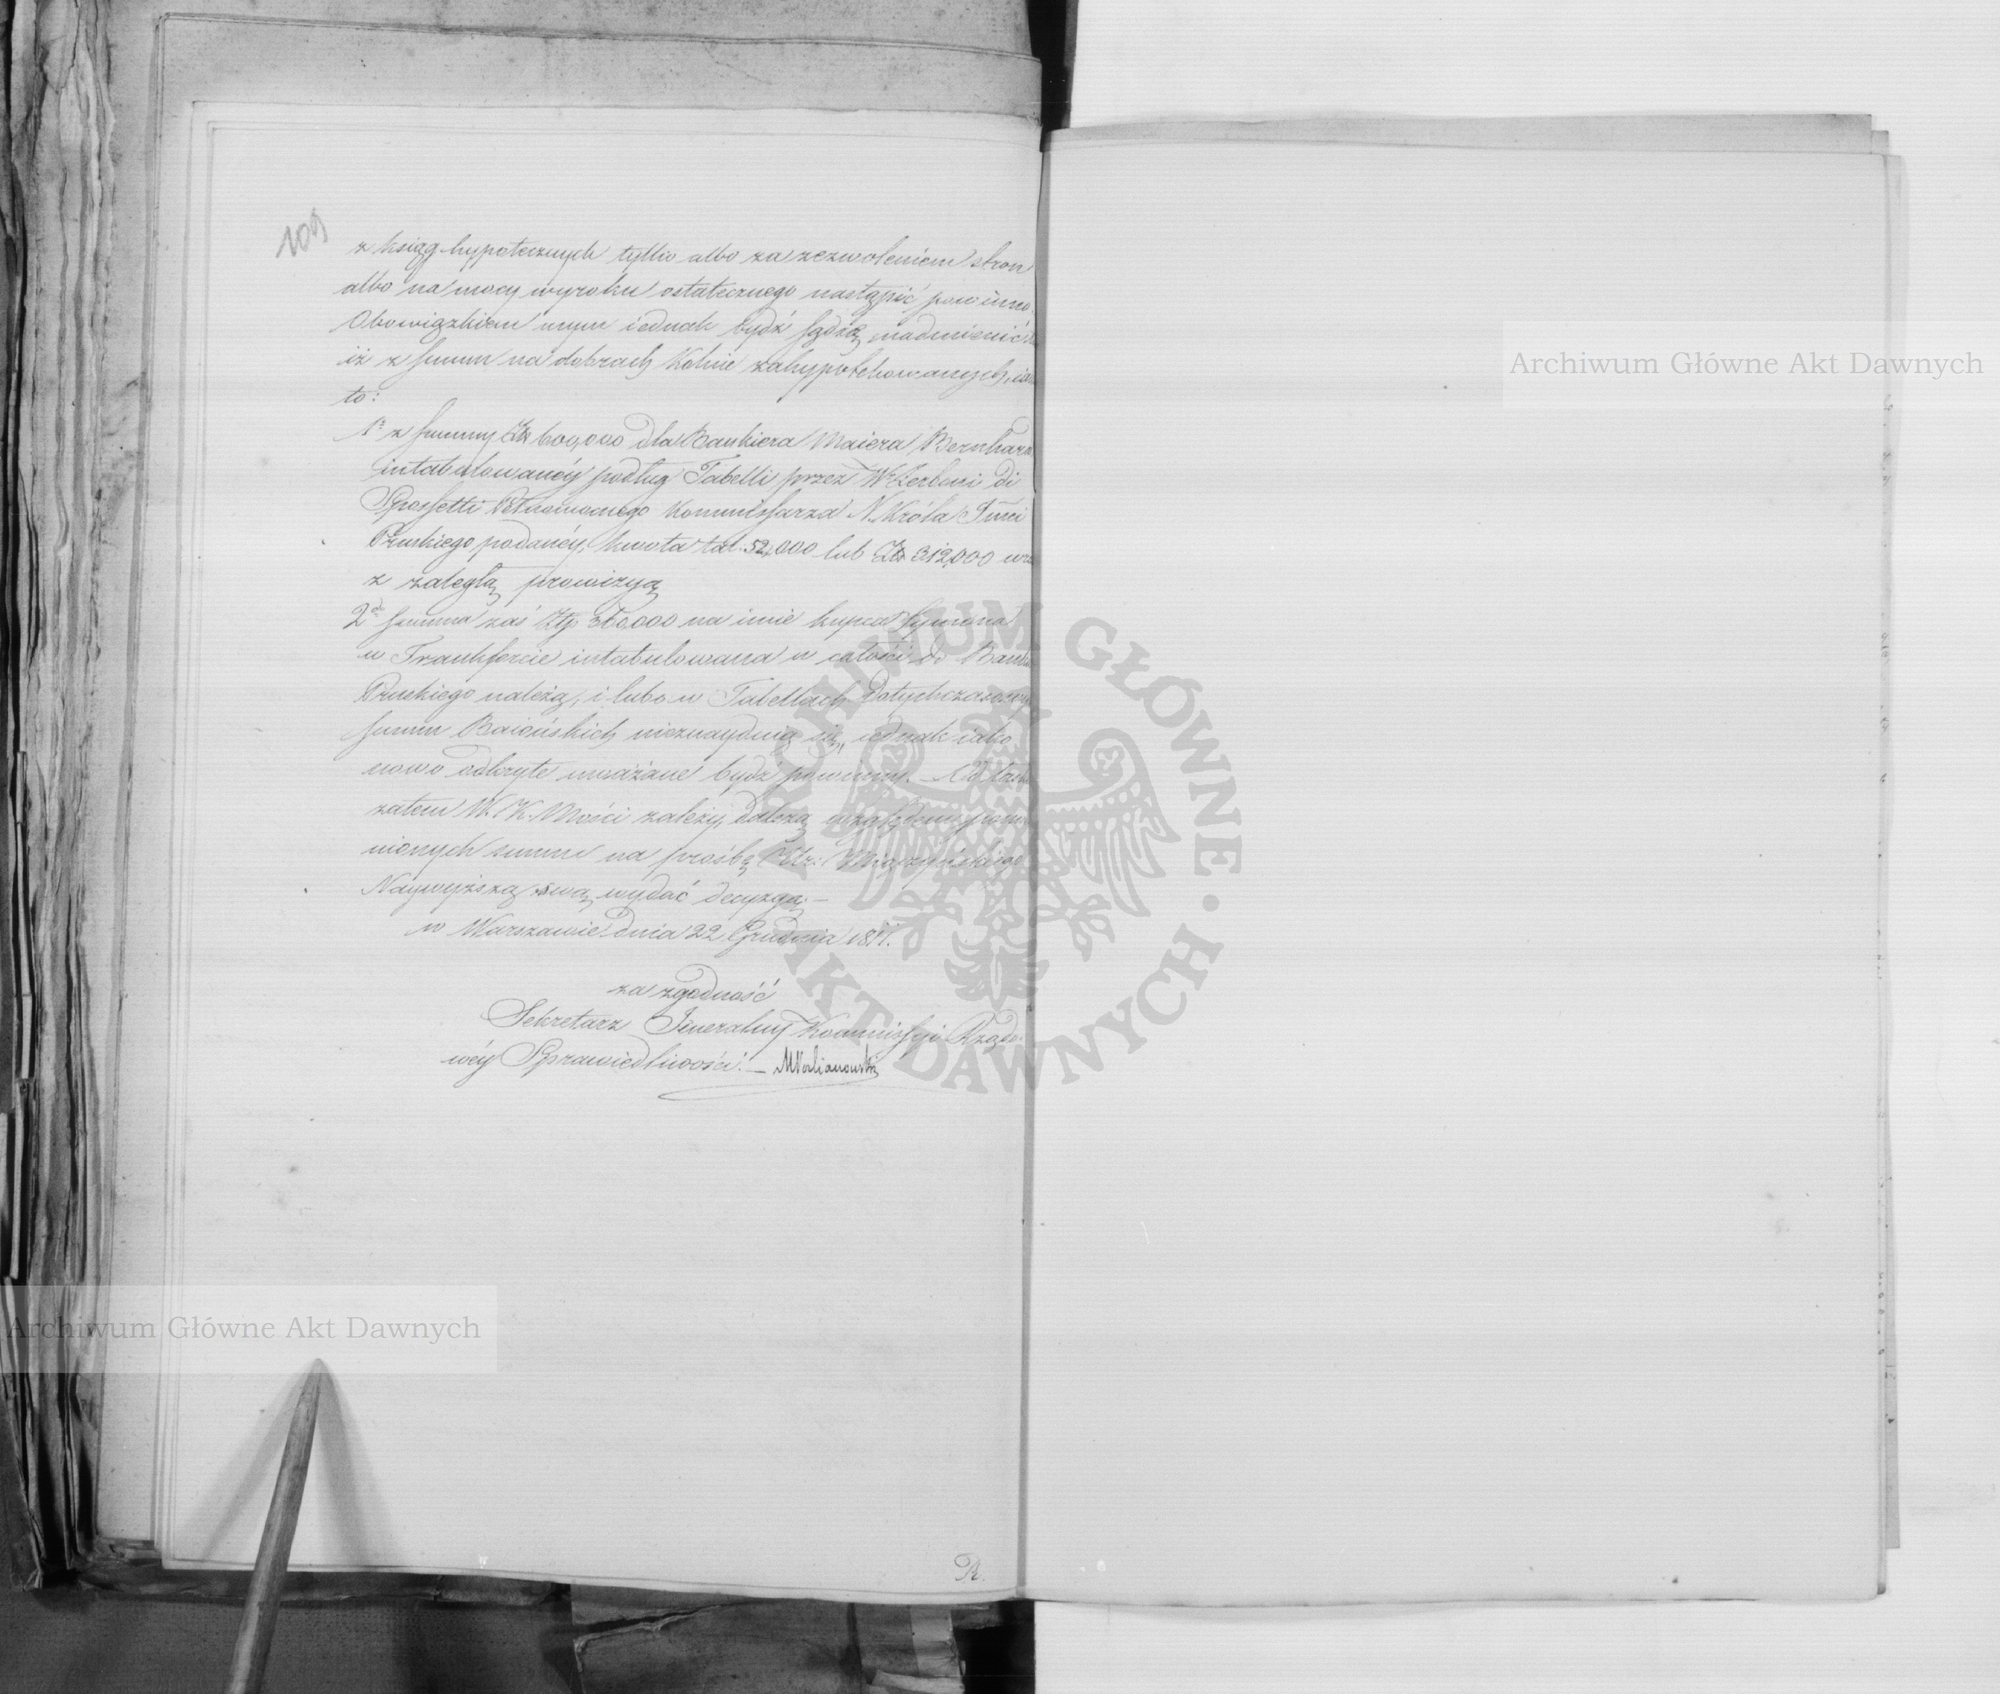 109
z ksiąg hypotecznych tylko albo za zezwoleniem stron
albo na mocy wyroku ostatecznego nastąpić powinno.
Obowiązkiem mym iednak bydź sądzę nadmienić
iż z summ na dobrach Kolnie zahypotekowanych, iak
to:
1º z summy Złp 600,000 dla Bankiera Maiera Bernhard
intabulowanéy podług Tabelli przez W. Zerboni di
Sposetti Pełnomocnego Kommissarza N. Króla Jmci
Pruskiego podanéy, kwota tal. 52,000 lub Złp 312,000 wraz
z zaległą prowizyą
2º summa zaś Złp 360,000 na imie kupca Symona
w Frankforcie intabulowana w całości do Banku
Pruskiego należą, i lubo w Tabellach dotychczasowych
summ Baiońskich nieznayduią się, iednak iako
nowo odkryte uważane bydź powinny. — Od
zatem W. K. Mości zależy, dalszą względem pom
nionych summ na prośbę Ur: Miączyńskiego
Naywyższą swą wydać decyzyą. —
w Warszawie dnia 22 Grudnia 1817.
za zgodność
Sekretarz Jeneralny Kommissyi Rządo
wéy Sprawiedliwości. —
R.
Archiwum Główne Akt Dawnych
Archiwum Główne Akt Dawnych
ARCHIWUM GŁÓWNE AKT DAWNYCH